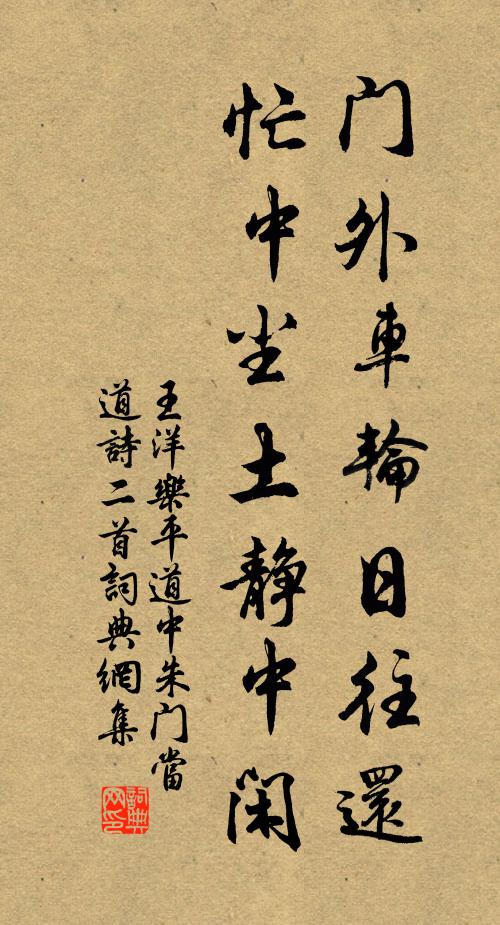 门外車輪日往還
忙中尘土静中閑
王洋樂平道中朱门當
道詩二首詞典網集
詞典
网印